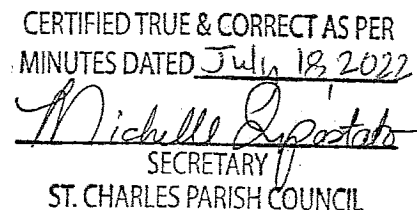 CERTIFIED TRUE & CORRECT AS PER
MINUTES DATED July 18, 2022
Michelle Impastato
SECRETARY
ST. CHARLES PARISH COUNCIL